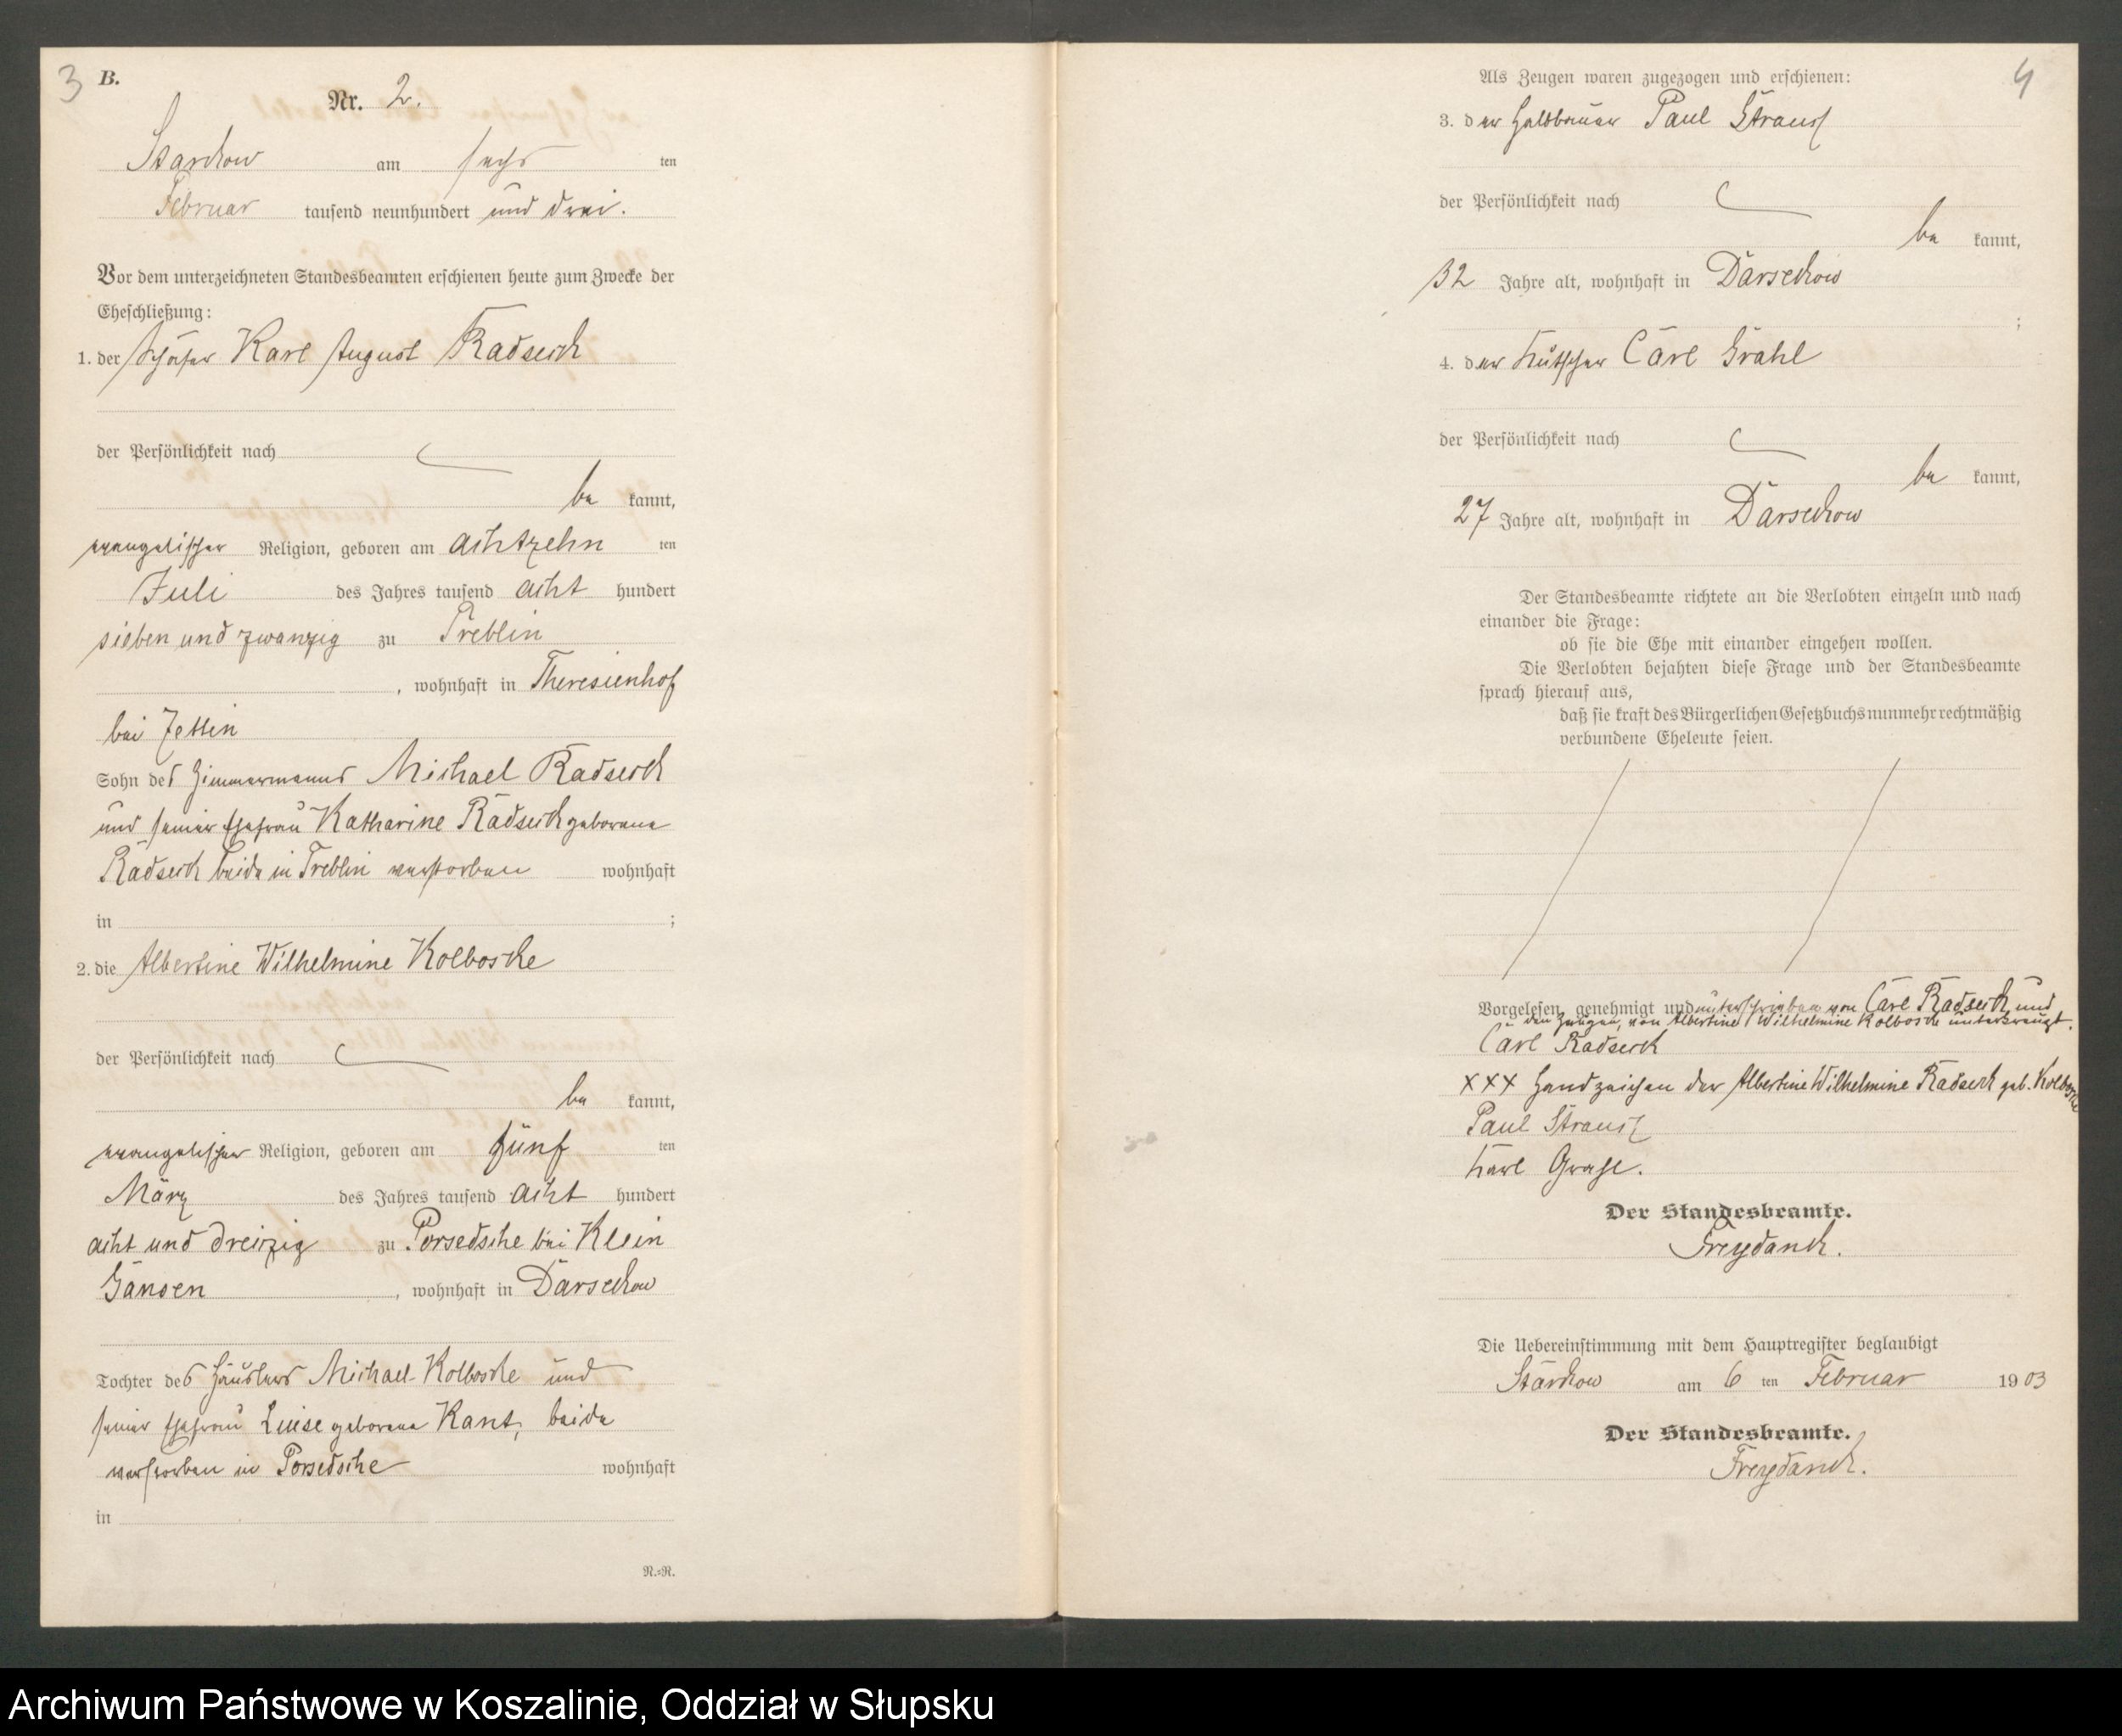 3 B.
Nr. 2.
Starchow am sechs ten
Februar tausend neunhundert und drei.
Vor dem unterzeichneten Standesbeamten erschienen heute zum Zwecke der
Eheschließung:
1. der Schäfer Karl August Radseck
der Persönlichkeit nach
be kannt,
evangelischer Religion, geboren am achtzehn ten
Juli des Jahres tausend acht hundert
sieben und zwanzig zu Treblin
, wohnhaft in Theresienhof
bei Zettin
Sohn des Zimmermanns Michael Radseck
und seiner Ehefrau Katharine Radseck geborene
Radseck beide in Treblin verstorben wohnhaft
in ;
2. die Albertine Wilhelmine Kolboske
der Persönlichkeit nach
be kannt,
evangelischer Religion, geboren am fünf ten
März des Jahres tausend acht hundert
acht und dreizig zu Porsedsche bei Klein
Gansen , wohnhaft in Darsechow
Tochter des Häuslers Michael Kolboske und
seiner Ehefrau Luise geborene Kant, beide
verstorben in Porsedsche wohnhaft
in
R.=R.
4
Als Zeugen waren zugezogen und erschienen:
3. der Halbbauer Paul Strauß
der Persönlichkeit nach
be kannt,
32 Jahre alt, wohnhaft in Darsechow
;
4. der Kutscher Carl Grahl
der Persönlichkeit nach
be kannt,
27 Jahre alt, wohnhaft in Darsechow
Der Standesbeamte richtete an die Verlobten einzeln und nach
einander die Frage:
ob sie die Ehe mit einander eingehen wollen.
Die Verlobten bejahten diese Frage und der Standesbeamte
sprach hierauf aus,
daß sie kraft des Bürgerlichen Gesetzbuchs nunmehr rechtmäßig
verbundene Eheleute seien.
Vorgelesen, genehmigt und unterschrieben von Carl Radseck und
den Zeugen, von Albertine Wilhelmine Kolboske unterkreuzt.
Carl Radseck
XXX Handzeichen der Albertine Wilhelmine Radseck geb. Kolboske
Paul Strauß
Karl Grahl.
Der Standesbeamte.
Freydanck.
Die Uebereinstimmung mit dem Hauptregister beglaubigt
Starchow am 6 ten Februar 1903
Der Standesbeamte.
Freydanck.
Archiwum Państwowe w Koszalinie, Oddział w Słupsku